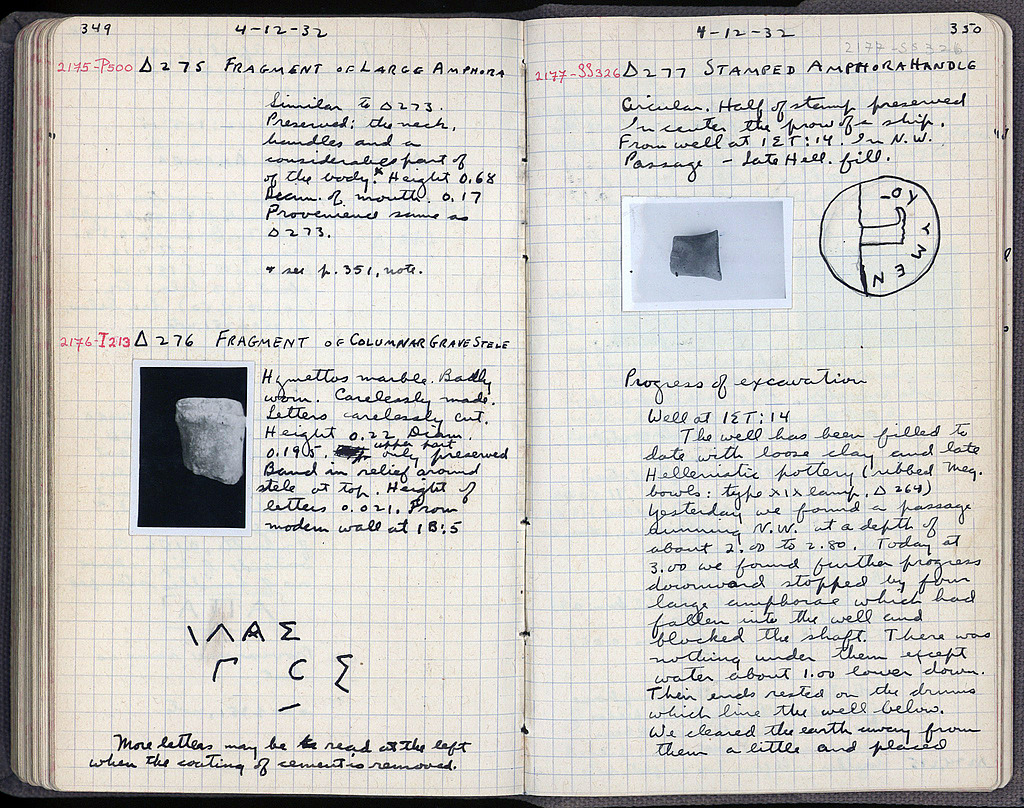 349
4-12-32
2175-P500 Δ 275 FRAGMENT OF LARGE AMPHORA
Similar to Δ 273.
Preserved: the neck,
handles and a
considerable part of
of the body.* Height 0.68
Diam. of mouth. 0.17
Provenience same as
Δ 273.
* see p. 351, note.
2176-I213 Δ 276 FRAGMENT OF COLUMNAR GRAVE STELE
Hymettos marble. Badly
worn. Carelessly made.
Letters carelessly cut.
Height 0.22 Diam.
0.195. upper part only preserved
Band in relief around
stele at top. Height of
letters 0.021. From
modern wall at 1B:5
\ΛΑΣ
Γ C Σ
More letters may be read at the left
when the coating of cement is removed.
4-12-32
350
2177-SS326
2177-SS326 Δ 277 STAMPED AMPHORA HANDLE
Circular. Half of stamp preserved
In center the prow of a ship.
From well at 1ΣT:14. In N.W.
Passage - Late Hell. fill.
ΟΥΥΜΕΝ
Progress of excavation
Well at 1ΣT:14
The well has been filled to
date with loose clay and late
Hellenistic pottery (ribbed Meg.
bowls: type XIX lamp. Δ 264)
Yesterday we found a passage
running N.W. at a depth of
about 2.00 to 2.80. Today at
3.00 we found further progress
downward stopped by four
large amphorae which had
fallen into the well and
blocked the shaft. There was
nothing under them except
water about 1.00 lower down.
Their ends rested on the drums
which line the well below.
We cleared the earth away from
them a little and placed